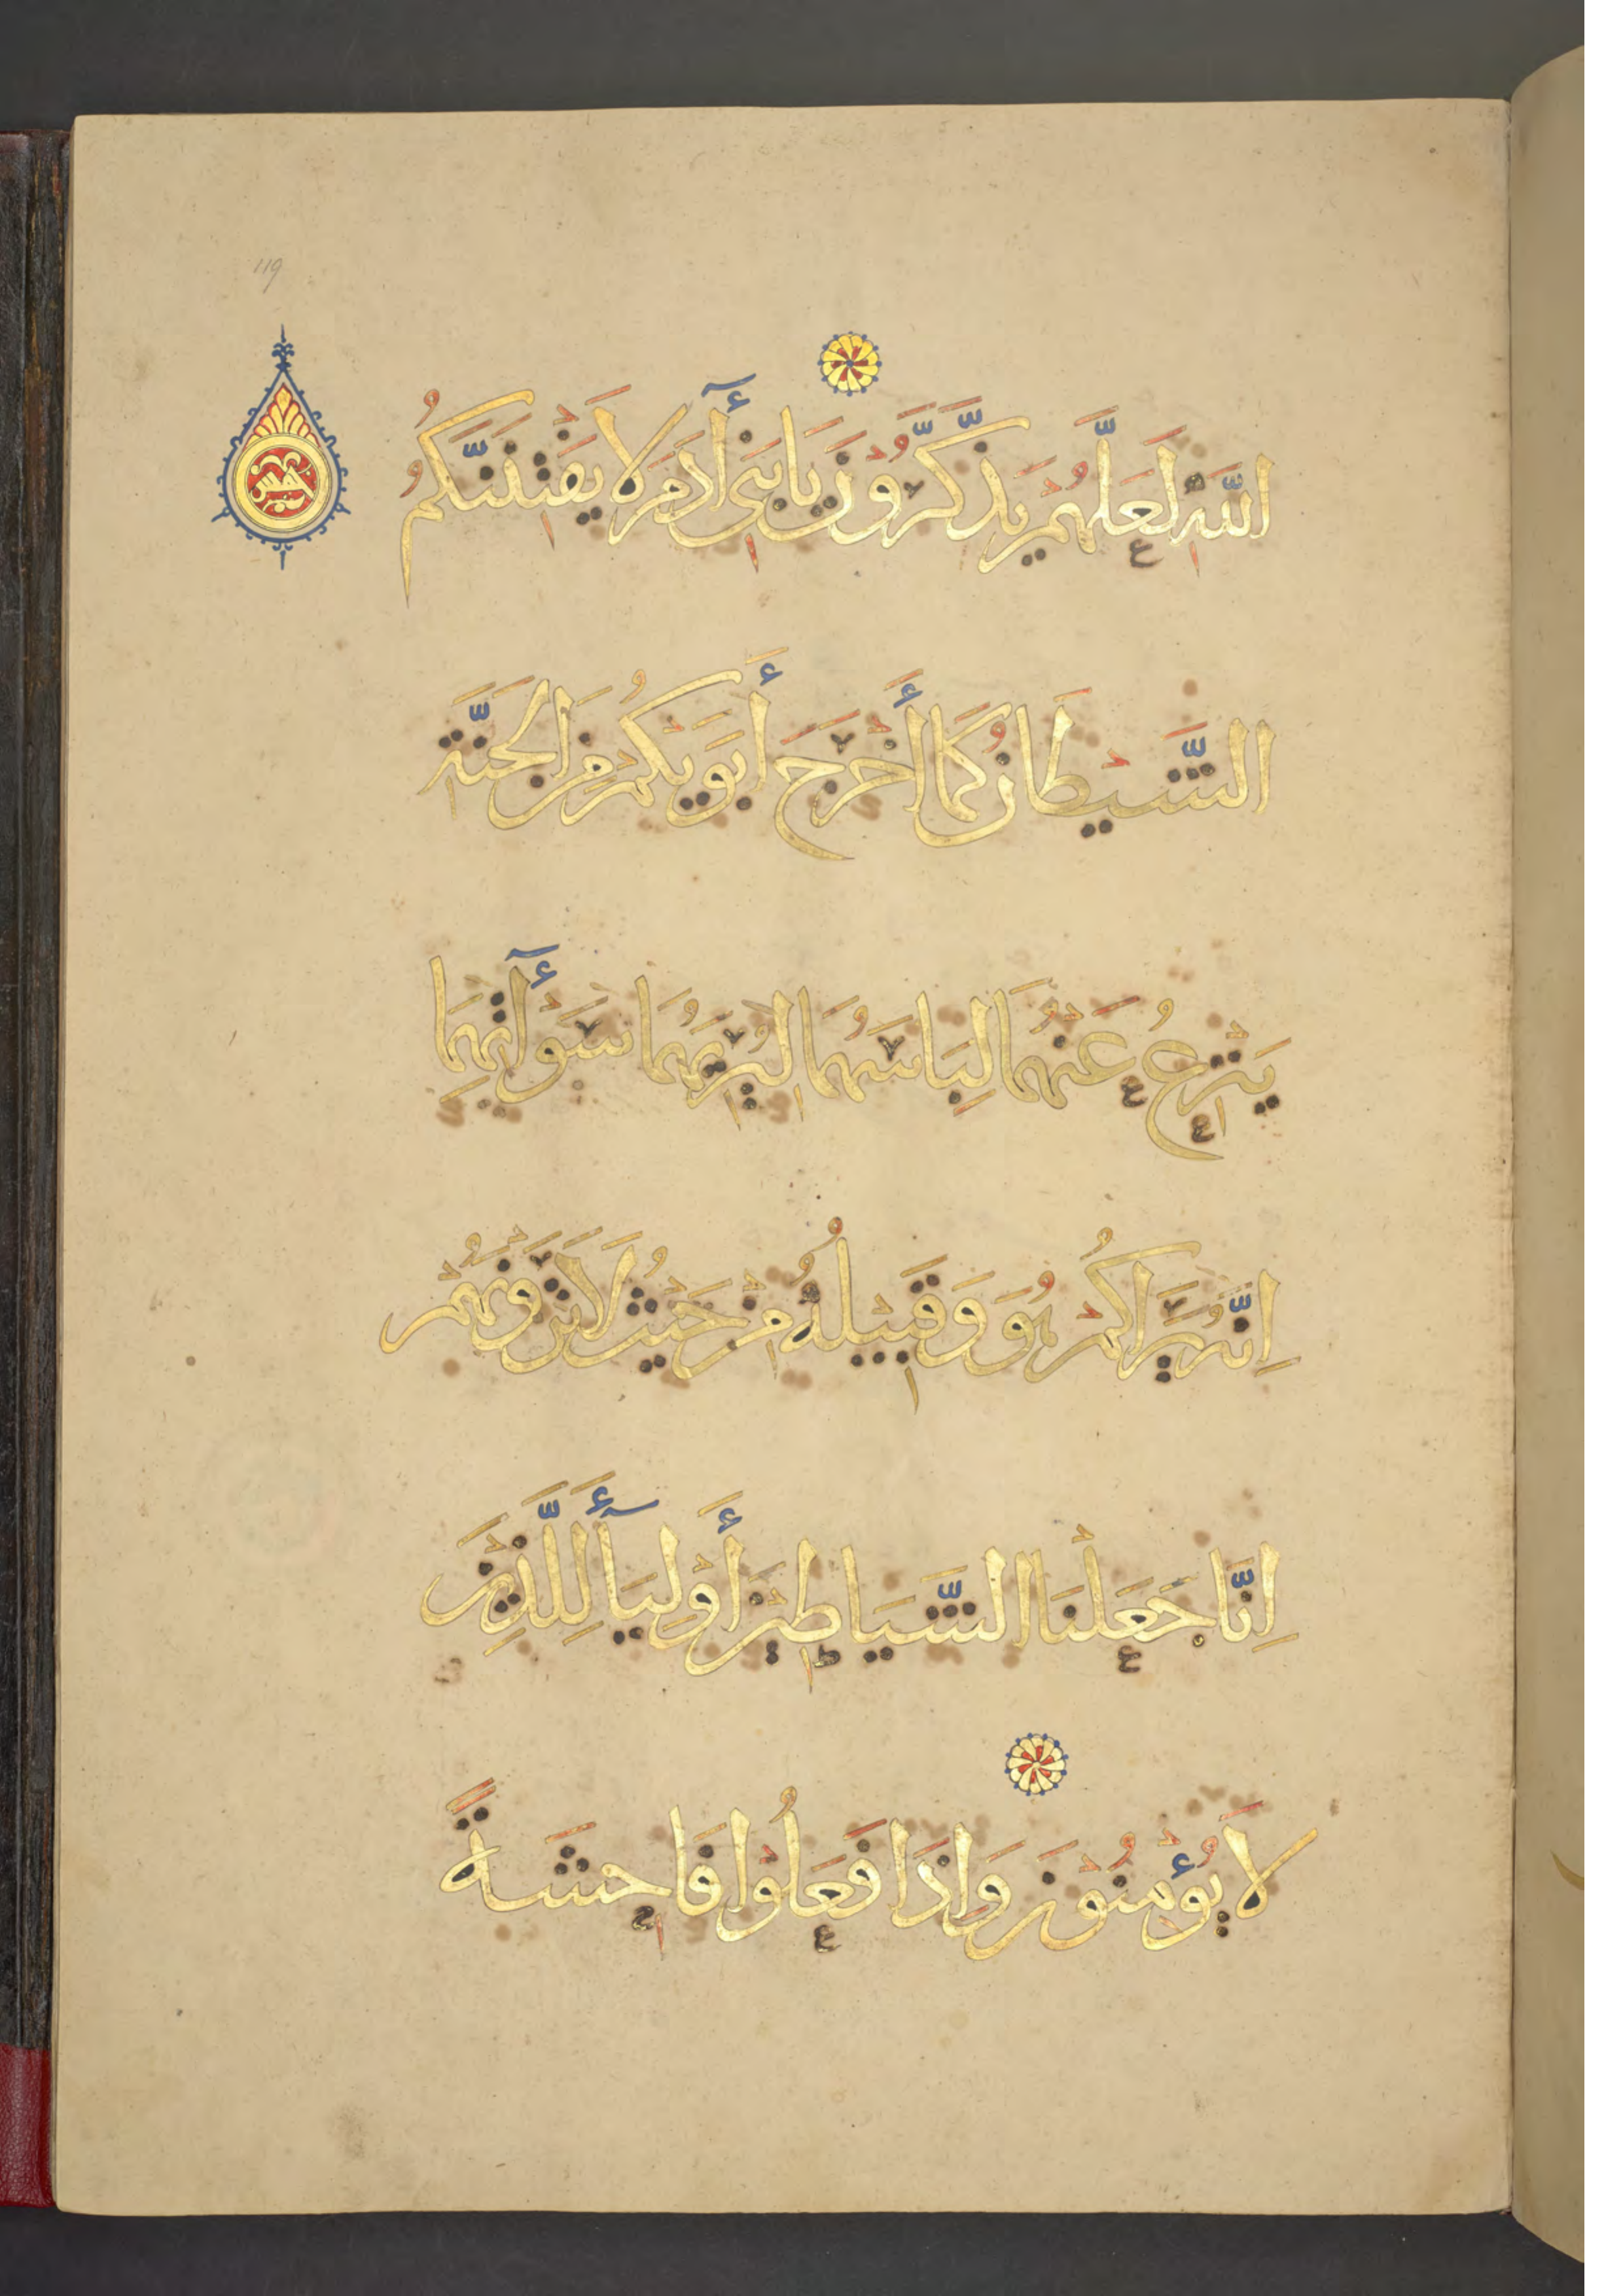 119
خمس
اللَّهِ لَعَلَّهُمْ يَذَّكَّرُونَ يَا بَنِي أٓدَمَ لَا يَفْتِنَنَّكُمُ
الشَّيْطَانُ كَمَا أَخْرَجَ أَبَوَيْكُمْ مِنَ الْجَنَّةِ
يَنْزِعُ عَنْهُمَا لِبَاسَهُمَا لِيُرِيَهُمَا سَوْأٓتِهِمَا
اِنَّهُ يَرَاكُمْ هُوَ وَقَبِيلُهُ مِنْ حَيْثُ لَا تَرَوْنَهُمْ
اِنَّا جَعَلْنَا الشَّيَاطِينَ أَوْلِيَآءَ لِلَّذِينَ
لَا يُؤْمِنُوْنَ وَاِذَا فَعَلُوْا فَاحِشَةً